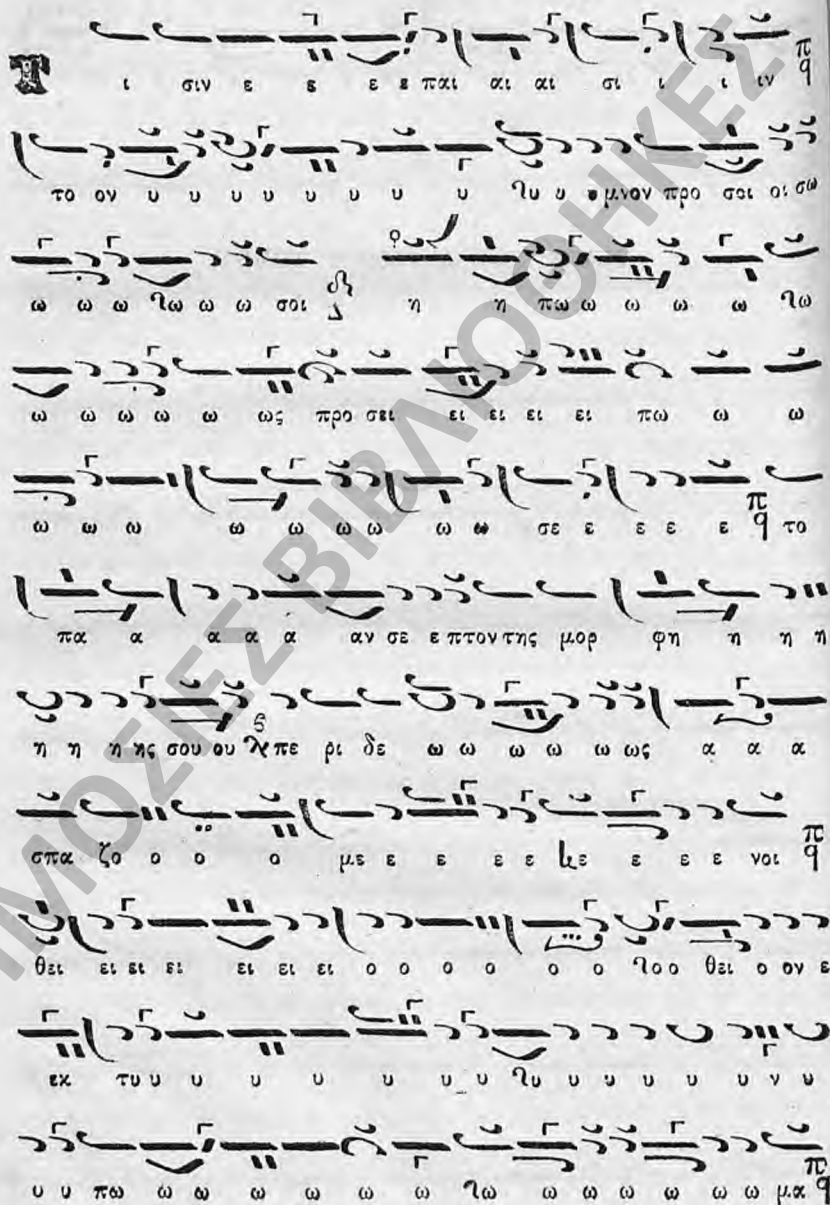 Τ ι σιν ε ε ε ε παι αι αι σι ι ι ιν
το ον υ υ υ υ υ υ υ υ υ υ υ μνον προ σοι οι σω
ω ω ω ω ω ω σοι η η πω ω ω ω ω ω
ω ω ω ω ω ως προ σει ει ει ει ει πω ω ω
ω ω ω ω ω ω ω ω ω σε ε ε ε ε το
πα α α α α αν σε ε πτον της μορ φη η η η
η η η ης σου ου πε ρι δε ω ω ω ω ως α α α
σπα ζο ο ο ο με ε ε ε ε ε ε ε ε νοι
θει ει ει ει ει ει ει ο ο ο ο ο ο ο ο θει ο ον ε
εκ τυ υ υ υ υ υ υ υ υ υ υ υ υ υ ν υ
υ υ πω ω ω ω ω ω ω ω ω ω ω ω ω μα
ΗΜΟΣΙΕΣ ΒΙΒΛΙΟΘΗΚΕΣ